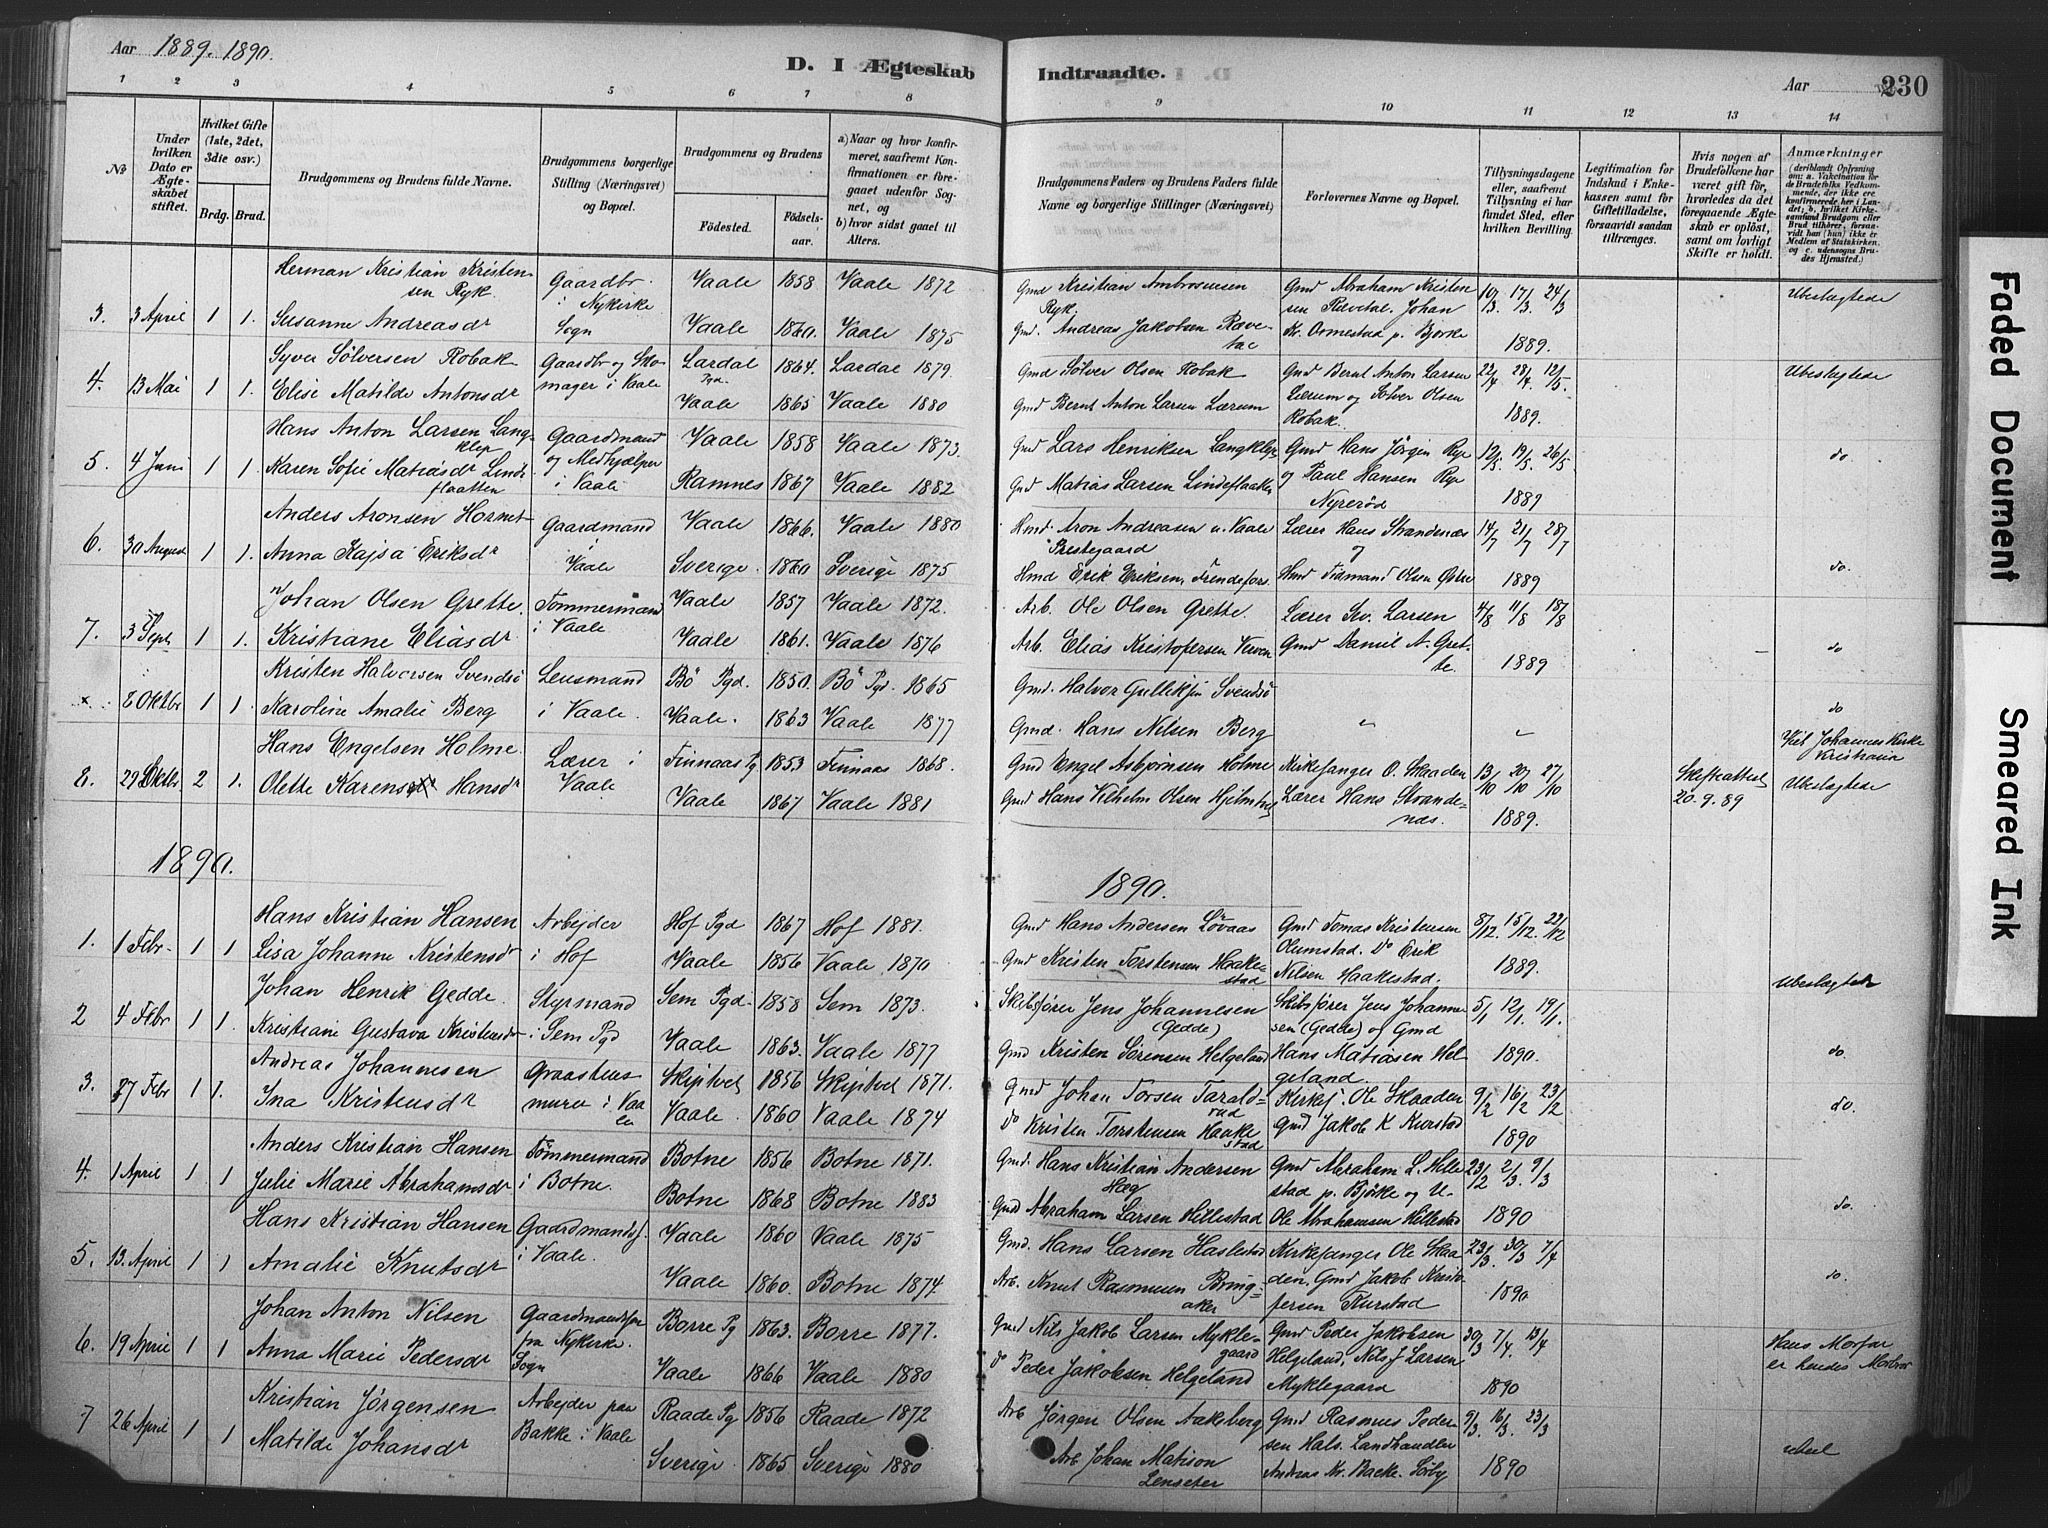 Aar 1889. 1890.
D. I Ægteskab Indtraadte.
Aar 230
1 2 3 4 5 6 7 8 9 10 11 12 13 14
No
Under hvilken Dato er Ægteskabet stiftet.
Hvilket Gifte (1ste, 2det, 3die osv.)
Brdg. Brud.
Brudgommens og Brudens fulde Navne.
Brudgommens borgerlige Stilling (Næringsvei) og Bopæl.
Brudgommens og Brudens
Fødested. Fødselsaar.
a) Naar og hvor konfirmeret, saafremt Konfirmationen er foregaaet udenfor Sognet, og
b) hvor sidst gaaet til Alters.
Brudgommens Faders og Brudens Faders fulde Navne og borgerlige Stillinger (Næringsvei)
Forlovernes Navne og Bopæl.
Tillysningsdagene eller, saafremt Tillysning ei har fundet Sted, efter hvilken Bevilling.
Legitimation for Indskud i Enkekassen samt for Giftetilladelse, forsaavidt saadan tiltrænges.
Hvis nogen af Brudefolkene har været gift før, hvorledes da det foregaaende Ægteskab er opløst, samt om lovligt Skifte er holdt.
Anmærkninger
(deriblandt Oplysning om: a. Vakcination for de Brudefolks Vedkommende, der ikke ere konfirmerede her i Landet; b. hvilket Kirkesamfund Brudgom eller Brud tilhører, forsaavidt han (hun) ikke er Medlem af Statskirken, og c. udensogns Brudes Hjemsted.)
3. 3 April 1 1.
Herman Kristian Kristensen Ryk
Susanne Andreasdr
Gaardbr i Nykirke Sogn
Vaale 1858 Vaale 1872
Vaale 1860. Vaale 1875
Gmd Kristian Ambrosiusen Ryk.
Gmd. Andreas Jakobsen Rævetal
Gmd Abraham Kristensen Rævetal. Johan Kr. Ormestad p. Bjerke
10/3. 17/3. 24/3 1889.
Ubeslægtede
4. 13 Mai 1 1.
Syver Sølversen Robak
Elise Matilde Antonsdr
Gaardbr og Skomager i Vaale
Lardal Pgd. 1864. Lardal 1879.
Vaale 1865 Vaale 1880
Gmd Sølver Olsen Robak
Gmd Bernt Anton Larsen Lærum
Gmd Bernt Anton Larsen Lærum og Sølver Olsen Robak.
22/4 28/4. 12/5. 1889.
Ubeslægtede
5. 4 Juni 1 1.
Hans Anton Larsen Langklep
Karen Sofie Matiasdr Lindeflaatten
Gaardmand og Medhjælper i Vaale
Vaale 1858 Vaale 1873.
Ramnes 1867 Vaale 1882
Gmd Lars Henriksen Langklep
Gmd Matias Larsen Lindeflaatten
Gmd Hans Jörgin Rye og Paul Hansen Rye Nyrerød
12/5 19/5. 26/5 1889
do
6. 30 August 1 1.
Anders Aronsen Hornet
Anna Kajsa Eriksdr
Gaardmand i Vaale
Vaale 1866. Vaale 1880
Sverige. 1860 Sverige 1875
Hmd. Aron Andreasen u. Vaale Prestegaard
Hmd Erik Eriksen, Frendefors.
Lærer Hans Strandenæs og
Hmd Tidmand Olsen Østre
14/7 21/7 28/7 1889
do.
7. 3 Septr 1 1.
Johan Olsen Grette.
Kristiane Eliasdr
Tømmermand i Vaale
Vaale 1857 Vaale 1872.
Vaale 1861. Vaale 1876
Arb. Ole Olsen Grette.
Arb. Elias Kristofersen Verven
Lærer Sev. Larsen
Gmd Daniel A. Grette.
4/8 11/8 18/8 1889
do
x. 8 Oktbr 1 1.
Kristen Halvorsen Svendsö
Karoline Amalie Berg
Lensmand i Vaale.
Bö Pgd. 1850. Bö Pgd. 1865
Vaale. 1863 Vaale 1877
Gmd. Halvor Gulliksen Svendsö
Gmd. Hans Nilsen Berg
do
Viet Johannes Kirke Kristiania
8. 29 Oktbr 2 1.
Hans Engelsen Holme.
Olette Karense Hansdr
Lærer i Vaale
Finnaas Pg 1853 Finnaas 1868.
Vaale 1867 Vaale 1881
Gmd Engel Asbjørnsen Holme
Gmd Hans Vilhelm Olsen Hjelmtvedt
Kirkesanger O. Skaaden
Lærer Hans Strandenæs.
13/10 20/10 27/10 1889.
Skifteattest 20.9.89
Ubeslægtede
1890.
1890.
1. 1 Febr. 1 1
Hans Kristian Hansen
Lisa Johanne Kristensdr
Arbejder i Hof
Hof Pgd 1867 Hof 1881.
Vaale 1856 Vaale 1870
Gmd Hans Andersen Løvaas
Gmd Kristen Torstensen Haakestad
Gmd Tomas Kristensen Olumstad. Do Erik Nilsen Haakestad.
8/12. 15/12. 22/12 1889.
Ubeslægtede
2 4 Febr 1 1.
Johan Henrik Gedde.
Kristiane Gustava Kristensdr
Styrmand i Sem Pgd
Sem Pgd. 1858 Sem 1873.
Vaale 1863. Vaale 1877
Skibsfører Jens Johannesen (Gedde)
Gmd Kristen Sørensen Helgeland
Skibsfører Jens Johannesen (Gedde) og Gmd Hans Matiasen Helgeland.
5/1 12/1. 19/1. 1890.
do.
3. 27 Febr 1 1.
Andreas Johannesen
Ina Kristensdr
Graastensmurer i Vaale
Skiptvet 1856 Skiptvet 1871.
Vaale. 1860 Vaale 1874
Gmd Johan Torsen Taraldrud
do Kristen Torstensen Haakestad
Kirkes. Ole Skaaden
Gmd Jakob K Kurstad
9/2 16/2 23/2 1890
do.
4. 1 April 1 1
Anders Kristian Hansen
Julie Marie Abrahamsdr
Tömmermand i Botne.
Botne 1856 Botne 1871.
Botne 1868 Botne 1883
Gmd. Hans Kristian Andersen Hæg
Gmd Abraham Larsen Hillestad
Gmd Abraham L. Hillestad p. Bjerke og U. Ole Abrahamsen Hillestad
23/2 2/3. 9/3 1890
do.
5. 13. April 1 1
Hans Kristian Hansen
Amalie Knutsdr
Gaardmands. i Vaale.
Vaale 1860 Vaale 1875
Vaale 1860. Botne 1874.
Gmd. Hans Larsen Haslestad
Arb. Knut Rasmusen Bringaker
Kirkesanger Ole Skaaden. Gmd Jakob Kristofersen Kurstad
23/3. 30/3 7/4 1890
do.
6. 19 April 1 1
Johan Anton Nilsen
Anna Marie Pedersdr
Gaardmandssøn fra Nykirke Sogn
Borre Pg 1863. Borre 1877.
Vaale 1866 Vaale 1880
Gmd Nils Jakob Larsen Myklegaard
do Peder Jakobsen Helgeland
Gmd Peder Jakobsen Helgeland, Nils J Larsen Myklegaard
30/3 7/4. 13/4 1890
Hans Morfar er hendes Morbror
7 26 April 1 1
Kristian Jørgensen
Matilde Johansdr
Arbejder paa Bakke i Vaale
Raade Pg 1856 Raade 1872
Sverige 1865 Sverige 1880
Arb Jörgen Olsen Aaksberg
Arb Johan Matison Lenseter
Gmd Rasmus Pedersen Hals. Landhandler Andreas Kr. Backe. Sørby
9/3. 16/3. 23/3 1890
ubesl
Faded Document
Smeared Ink